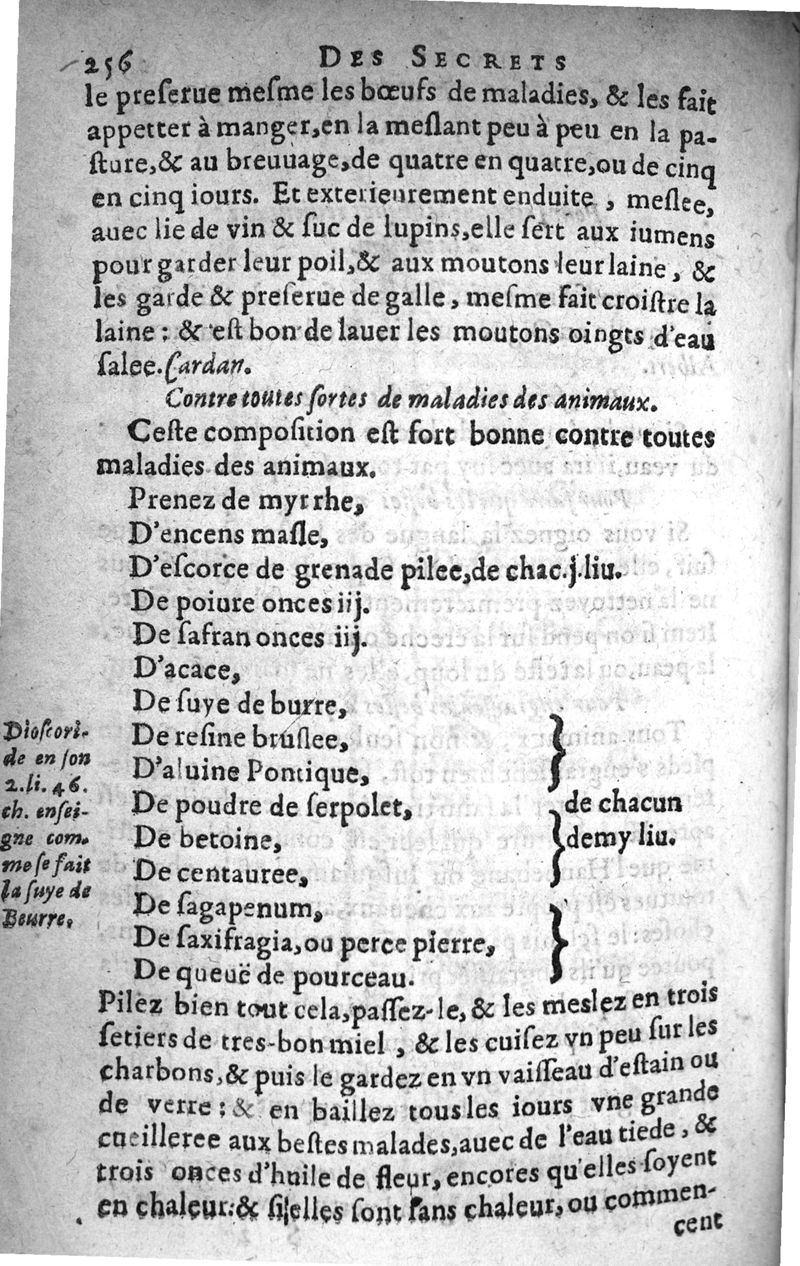 256 DES SECRETS
le preſerue meſme les bœufs de maladies, & les fait
appetter à manger,en la meſlant peu à peu en la pa-
ſture,& au breuuage,de quatre en quatre,ou de cinq
en cinq iours. Et exterieurement enduite , meſlee,
auec lie de vin & ſuc de lupins,elle ſert aux iumens
pour garder leur poil,& aux moutons leur laine, &
les garde & preſerue de galle, meſme fait croiſtre la
laine : & eſt bon de lauer les moutons oingts d'eau
ſalee. Cardan.
Contre toutes ſortes de maladies des animaux.
Ceſte compoſition eſt fort bonne contre toutes
maladies des animaux.
Prenez de myrrhe,
D'encens maſle,
D'eſcorce de grenade pilee,de chac.j.liu.
De poiure onces iij.
De ſafran onces iij.
D'acace,
De ſuye de burre,
De reſine bruſlee,
D'aluine Pontique,
De poudre de ſerpolet,
De betoine,
De centauree,
De ſagapenum,
De ſaxifragia,ou perce pierre,
De queuë de pourceau.
de chacun
demy liu.
Dioſcori-
de en ſon
2.li. 46.
ch. enſei-
gne com-
me ſe fait
la ſuye de
Beurre,
Pilez bien tout cela,paſſez-le, & les meslez en trois
ſetiers de tres-bon miel , & les cuiſez vn peu ſur les
charbons,& puis le gardez en vn vaiſſeau d'eſtain ou
de verre : & en baillez tous les iours vne grande
cueilleree aux beſtes malades,auec de l'eau tiede, &
trois onces d'huile de fleur, encores qu'elles ſoyent
en chaleur:& ſi elles ſont ſans chaleur, ou commen-
cent